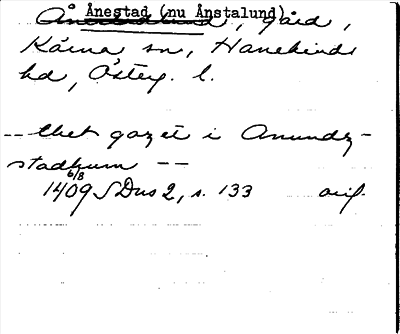 Ånestad (nu Ånstalund)
gård,
Kärna sn, Hanekinds
hd, Österg. l.
-- thet gozet i Anundz-
stadhum --
1409 6/8 SDns 2, s. 133 orig.